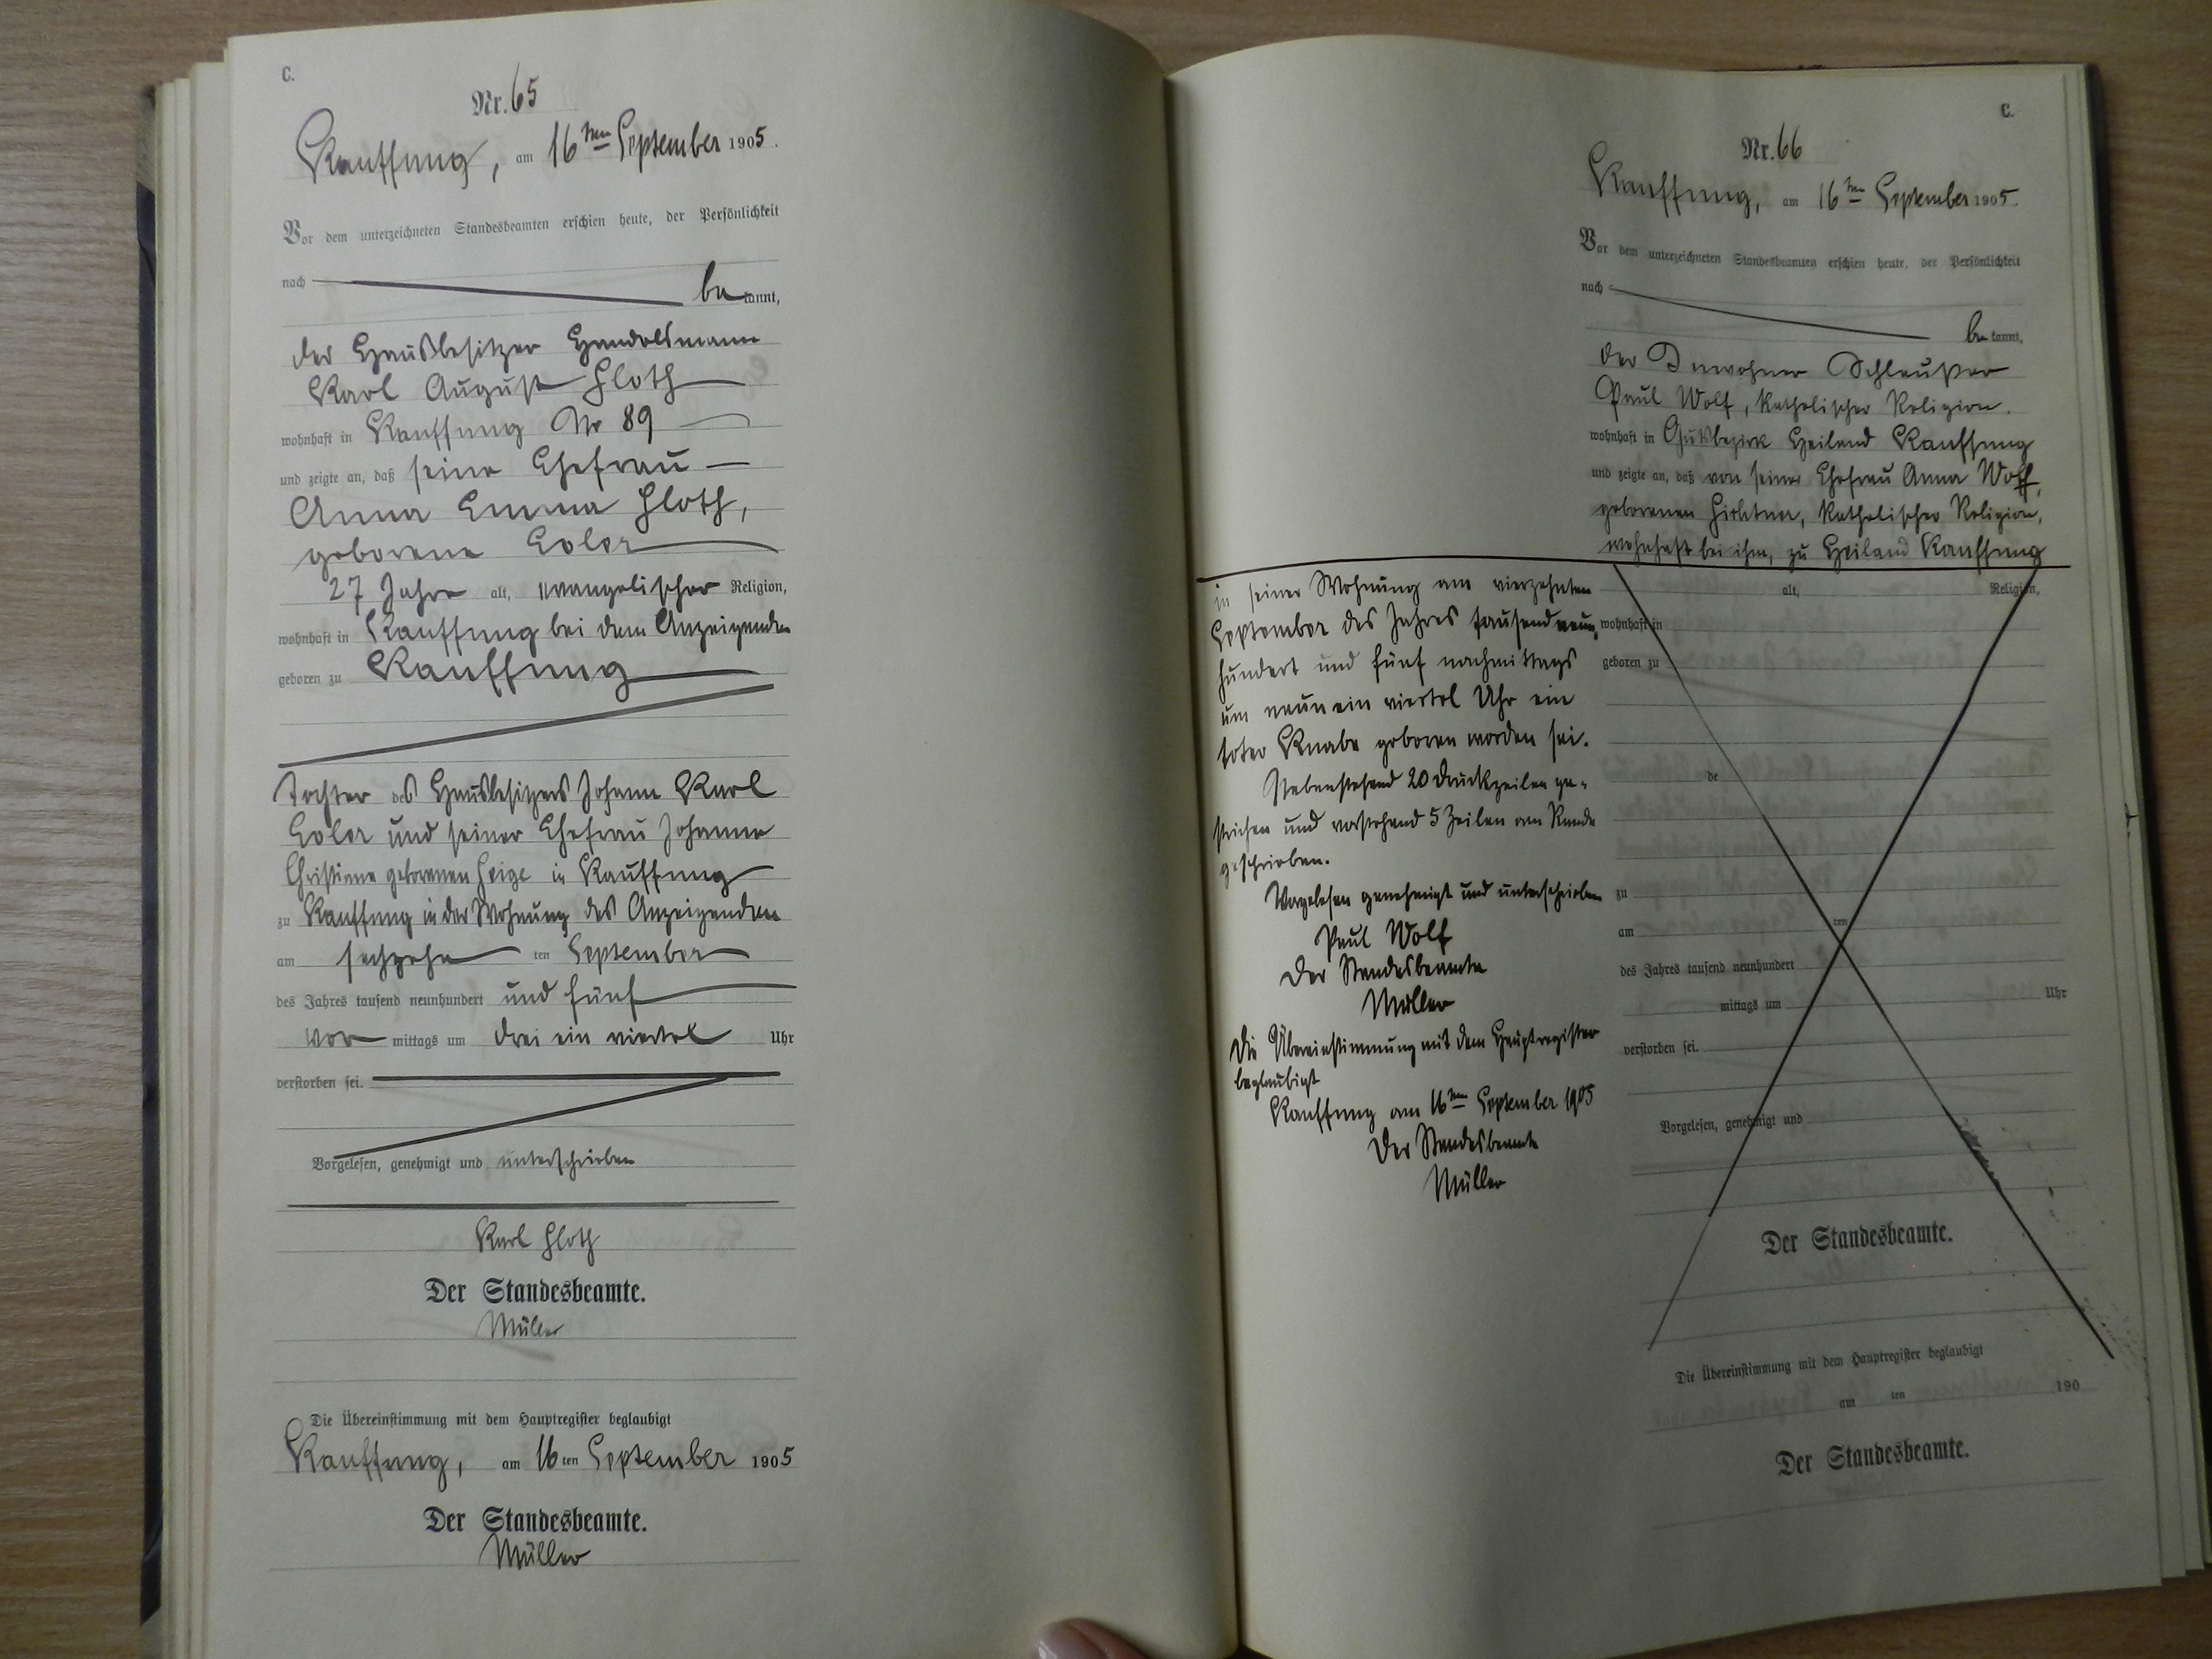 C.
Nr. 65
Kauffung, am 16ten September 1905.
Vor dem unterzeichneten Standesbeamten erschien heute, der Persönlichkeit
nach
bekannt,
der Hausbesitzer Handelsmann
Karl August Floth
wohnhaft in Kauffung No 89
und zeigte an, daß seine Ehefrau
Anna Emma Floth,
geborene
27 Jahre alt, evangelischer Religion,
wohnhaft in Kauffung bei dem Anzeigenden
geboren zu Kauffung
Tochter des Hausbesitzers Johann Karl
und seiner Ehefrau Johanne
Christiane geborenen in Kauffung
zu Kauffung in der Wohnung des Anzeigenden
am sechzehn ten September
des Jahres tausend neunhundert und fünf
vor mittags um drei ein viertel Uhr
verstorben sei.
Vorgelesen, genehmigt und unterschrieben
Karl Floth
Der Standesbeamte.
Müller
Die Übereinstimmung mit dem Hauptregister beglaubigt
Kauffung, am 16ten September 1905
Der Standesbeamte.
Müller
C.
Nr. 66
Kauffung, am 16ten September 1905.
Vor dem unterzeichneten Standesbeamten erschien heute, der Persönlichkeit
nach
bekannt,
der Inwohner
Paul Wolf, katholischer Religion.
wohnhaft in Gutsbezirk Heiland Kauffung
und zeigte an, daß von seiner Ehefrau Anna Wolf,
geborenen, katholischer Religion,
wohnhaft bei ihm, zu Heiland Kauffung
in seiner Wohnung am vierzehnten
September des Jahres tausend neun
hundert und fünf nachmittags
um neun ein viertel Uhr ein
toter Knabe geboren worden sei.
Nebenstehend 20 Druckzeilen ge-
strichen und vorstehend 5 Zeilen am Rande
geschrieben.
Vorgelesen genehmigt und unterschrieben
Paul Wolf
Der Standesbeamte
Müller
Die Übereinstimmung mit dem Hauptregister
beglaubigt
Kauffung am 16ten September 1905
Der Standesbeamte
Müller
alt, Religion,
wohnhaft in
geboren zu
de
zu
am ten
des Jahres tausend neunhundert
mittags um Uhr
verstorben sei.
Vorgelesen, genehmigt und
Der Standesbeamte.
Die Übereinstimmung mit dem Hauptregister beglaubigt
am ten 190
Der Standesbeamte.